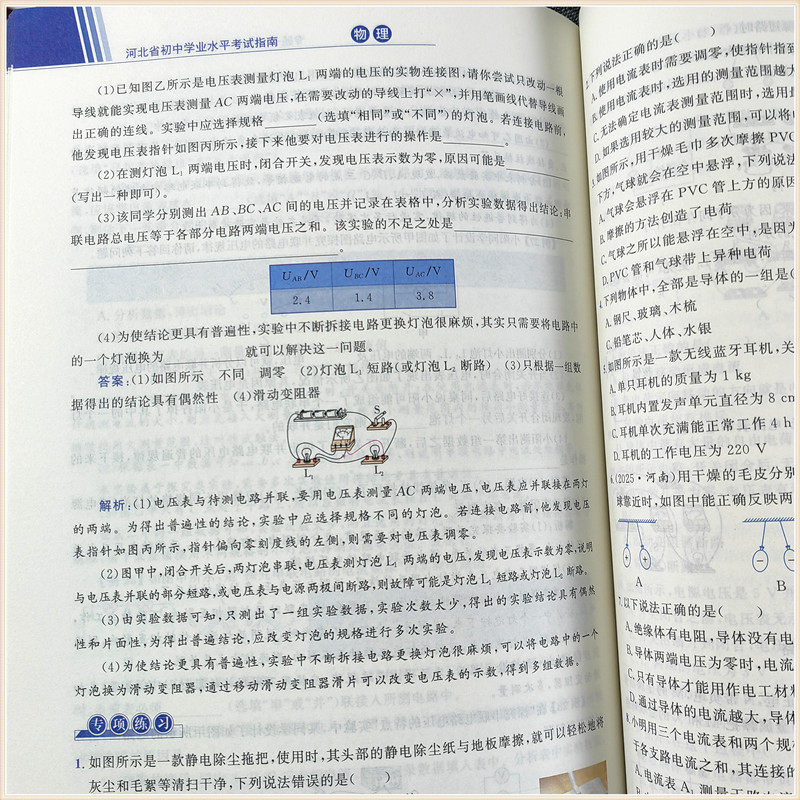 河北省初中学业水平考试指南
物理
(1)已知图乙所示是电压表测量灯泡 L₁ 两端的电压的实物连接图,请你尝试只改动一根
导线就能实现电压表测量 AC 两端电压,在需要改动的导线上打“×”,并用笔画线代替导线画
出正确的连线。实验中应选择规格________(选填“相同”或“不同”)的灯泡。若连接电路前,
他发现电压表指针如图丙所示,接下来他要对电压表进行的操作是________。
(2)在测灯泡 L₁ 两端电压时,闭合开关,发现电压表示数为零,原因可能是________
(写出一种即可)。
(3)该同学分别测出 AB、BC、AC 间的电压并记录在表格中,分析实验数据得出结论:串
联电路总电压等于各部分电路两端电压之和。该实验的不足之处是________
________。
U_AB/V U_BC/V U_AC/V
2.4 1.4 3.8
(4)为使结论更具有普遍性,实验中不断拆接电路更换灯泡很麻烦,其实只需要将电路中
的一个灯泡换为________就可以解决这一问题。
答案:(1)如图所示 不同 调零 (2)灯泡 L₁ 短路(或灯泡 L₂ 断路) (3)只根据一组数
据得出的结论具有偶然性 (4)滑动变阻器
S
L₁ L₂
解析:(1)电压表与待测电路并联,要用电压表测量 AC 两端电压,电压表应并联接在两灯
的两端。为得出普遍性的结论,实验中应选择规格不同的灯泡。若连接电路前,他发现电压
表指针如图丙所示,指针偏向零刻度线的左侧,则需要对电压表调零。
(2)图甲中,闭合开关后,两灯泡串联,电压表测灯泡 L₁ 两端的电压,发现电压表示数为零,说明
与电压表并联的部分短路,或电压表与电源两极间断路,则故障可能是灯泡 L₁ 短路或灯泡 L₂ 断路。
(3)由实验数据可知,只测出了一组实验数据,实验次数太少,得出的实验结论具有偶然
性和片面性,为得出普遍结论,应改变灯泡的规格进行多次实验。
(4)为使结论更具有普遍性,实验中不断拆接电路更换灯泡很麻烦,可以将电路中的一个
灯泡换为滑动变阻器,通过移动滑动变阻器滑片可以改变电压表的示数,得到多组数据。
专项练习
1. 如图所示是一款静电除尘拖把,使用时,其头部的静电除尘纸与地板摩擦,就可以轻松地将
灰尘和毛絮等清扫干净,下列说法错误的是( )
下列说法正确的是( )
A.使用电流表时需要调零,使指针指到
B.使用电流表时,选用的测量范围越大
C.无法确定电流表测量范围时,选用最
D.如果选用较大的测量范围,可以将
如图所示,用干燥毛巾多次摩擦 PVC
下方,气球就会在空中悬浮,下列说法
A.气球会悬浮在 PVC 管上方的原因
B.摩擦的方法创造了电荷
C.气球之所以能悬浮在空中,是因为
D.PVC 管和气球带上异种电荷
4.下列物体中,全部是导体的一组是(
A.钢尺、玻璃、木梳
C.铅笔芯、人体、水银
5.如图所示是一款无线蓝牙耳机,关
A.单只耳机的质量为 1 kg
B.耳机内置发声单元直径为 8 cm
C.耳机单次充满能正常工作 4 h
D.耳机的工作电压为 220 V
6.(2025·河南)用干燥的毛皮分别
球靠近时,如图中能正确反映两
A B
7.以下说法正确的是( )
A.绝缘体有电阻,导体没有电
B.导体两端电压为零时,电流
C.只有导体才能用作电工材料
D.通过导体的电流越大,导体
8.小明用三个电流表和两个规
于各支路电流之和,其连接的
A.电流表 A₁ 测量干路电流